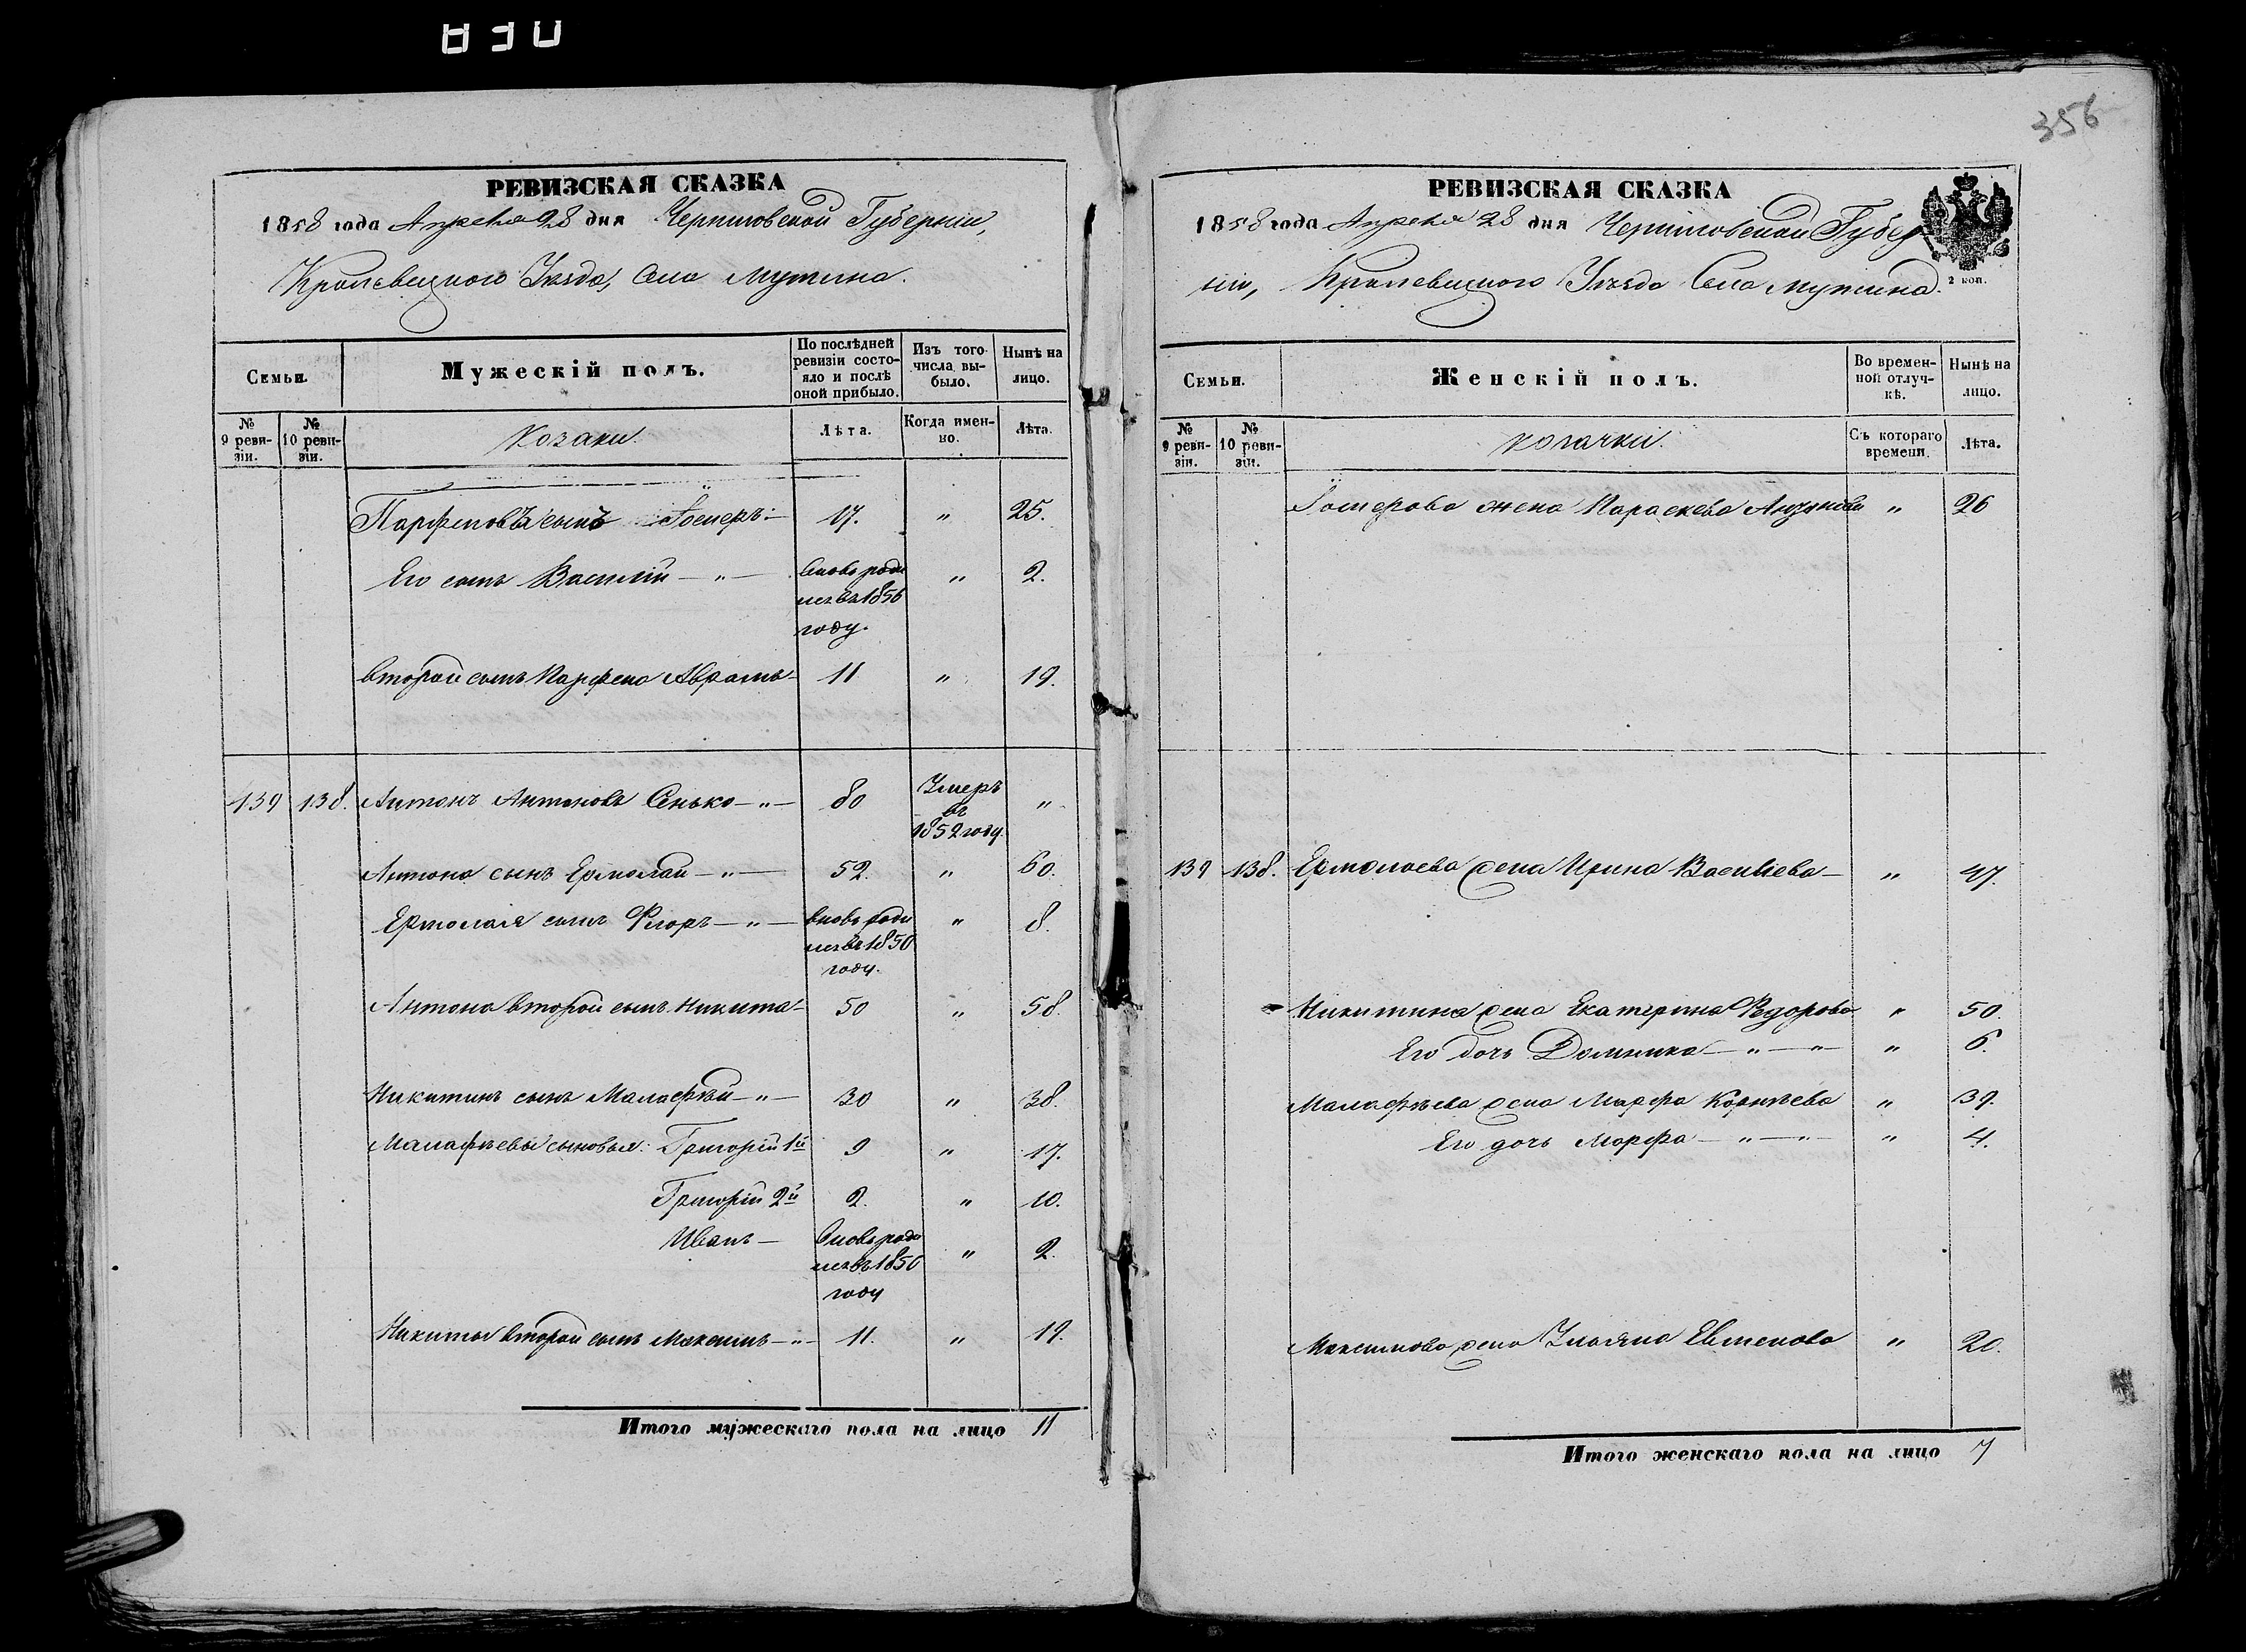 356
РЕВИЗСКАЯ СКАЗКА
1858 года Апреля 28 дня Черниговской Губерніи,
Кролевецкого Уѣзда, Села Мутина.
Семьи.
Мужескій полъ.
По послѣдней ревизіи состояло и послѣ оной прибыло.
Изъ того числа выбыло.
Нынѣ на лицо.
№ 9 ревизіи.
№ 10 ревизіи.
Козаки.
Лѣта.
Когда именно.
Лѣта.
Парфеновъ сынъ 17. " 25.
Его сынъ Василій — " — Вновь родился въ 1856 году. " 2.
Второй сынъ Парфена Аврамъ — 11 " 19.
139 138. Антонъ Антоновъ Сенько — " — 80 Умеръ въ 1852 году. "
Антона сынъ Ермолай — " — 52. " 60.
Ермолая сынъ Флоръ — " — вновь родился въ 1850 году. " 8.
Антона второй сынъ Никита — 50 " 58.
Никитинъ сынъ Малафѣй — " — 30 " 38.
Малафѣевы сыновья: Григорій 1й 9 " 17.
Григорій 2й 2. " 10.
Иванъ — Вновь родился въ 1856 году " 2.
Никиты второй сынъ Максимъ — " — 11. " 19.
Итого мужескаго пола на лицо 11
РЕВИЗСКАЯ СКАЗКА
1858 года Апреля 28 дня Черниговской Губер
ніи, Кролевецкого Уѣзда Села Мутина.
2 коп.
Семьи.
Женскій полъ.
Во временной отлучкѣ.
Нынѣ на лицо.
№ 9 ревизіи.
№ 10 ревизіи.
козачки.
Съ котораго времени.
Лѣта.
жена Параскева " 26
139 138. Ермолаева жена Ирина Васильева — " 47.
Никитина жена Екатерина Федорова " 50.
Его дочь Домника — " — " — " 6.
Малафѣева жена Марфа Корнѣева " 39.
Его дочь Марфа — " — " — " 4.
Максимова жена Ульяна Евменова " 20.
Итого женскаго пола на лицо 7